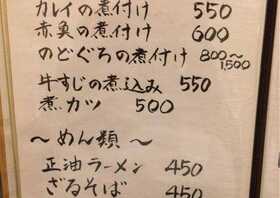 カレイの煮付け 550
赤魚の煮付け 600
のどぐろの煮付け 800〜1,500
牛すじの煮込み 550
煮カツ 500
〜めん類〜
正油ラーメン 450
ざるそば 450